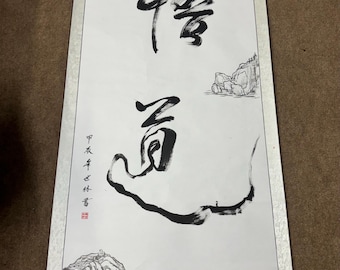 悟
道
甲辰年世林書